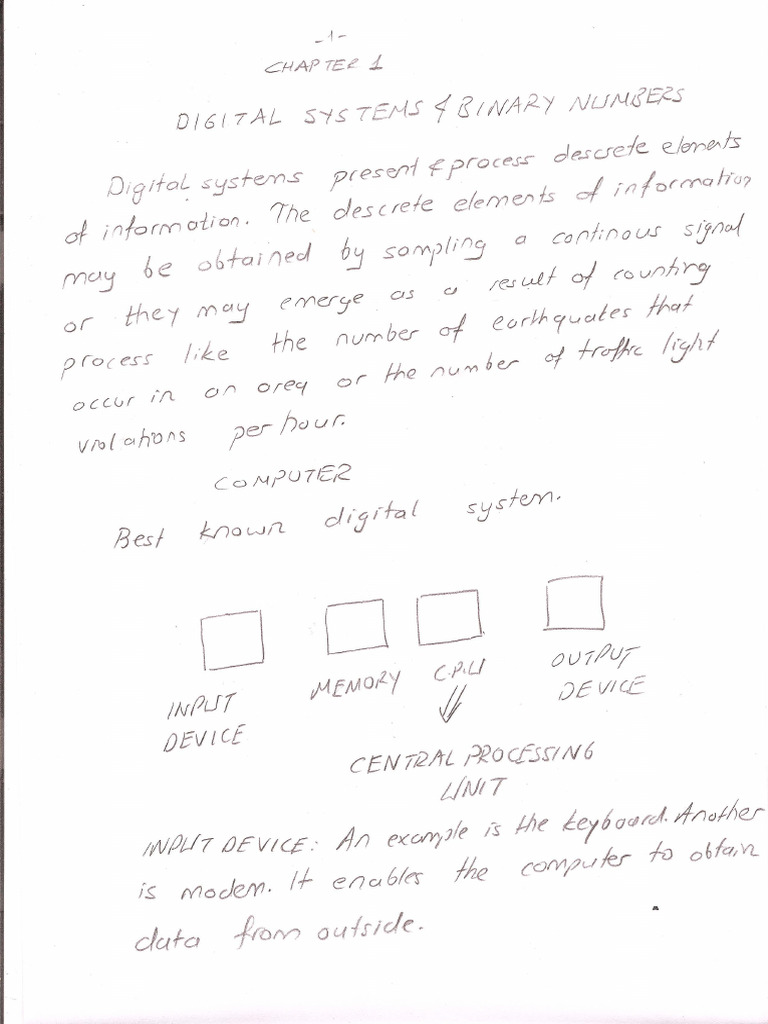 -1-
CHAPTER 1
DIGITAL SYSTEMS & BINARY NUMBERS
Digital systems present & process descrete elements
of information. The descrete elements of information
may be obtained by sampling a continous signal
or they may emerge as a result of counting
process like the number of earthquates that
occur in an area or the number of traffic light
violations per hour.
COMPUTER
Best known digital system.
INPUT DEVICE
MEMORY
C.P.U
OUTPUT DEVICE
CENTRAL PROCESSING
UNIT
INPUT DEVICE: An example is the keyboard. Another
is modem. It enables the computer to obtain
data from outside.